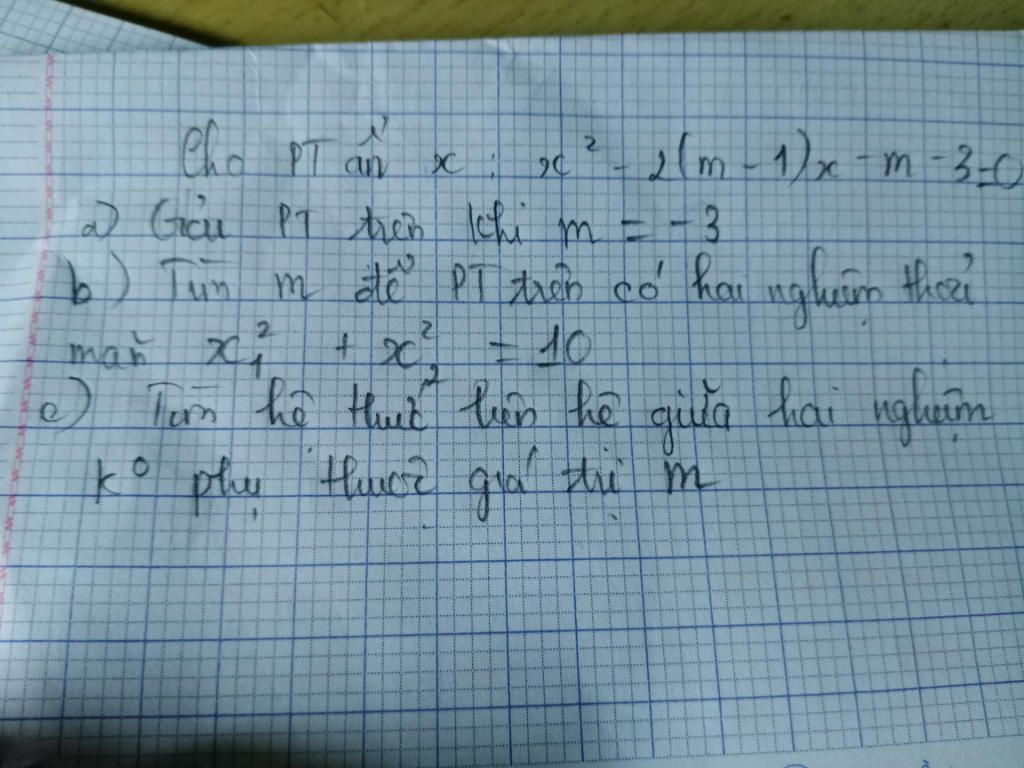 Cho PT ẩn x : x² - 2(m - 1)x - m - 3 = 0
a) Giải PT trên khi m = -3
b) Tìm m để PT trên có hai nghiệm thoả
mãn x₁² + x₂² = 10
c) Tìm hệ thức liên hệ giữa hai nghiệm
k° phụ thuộc giá trị m